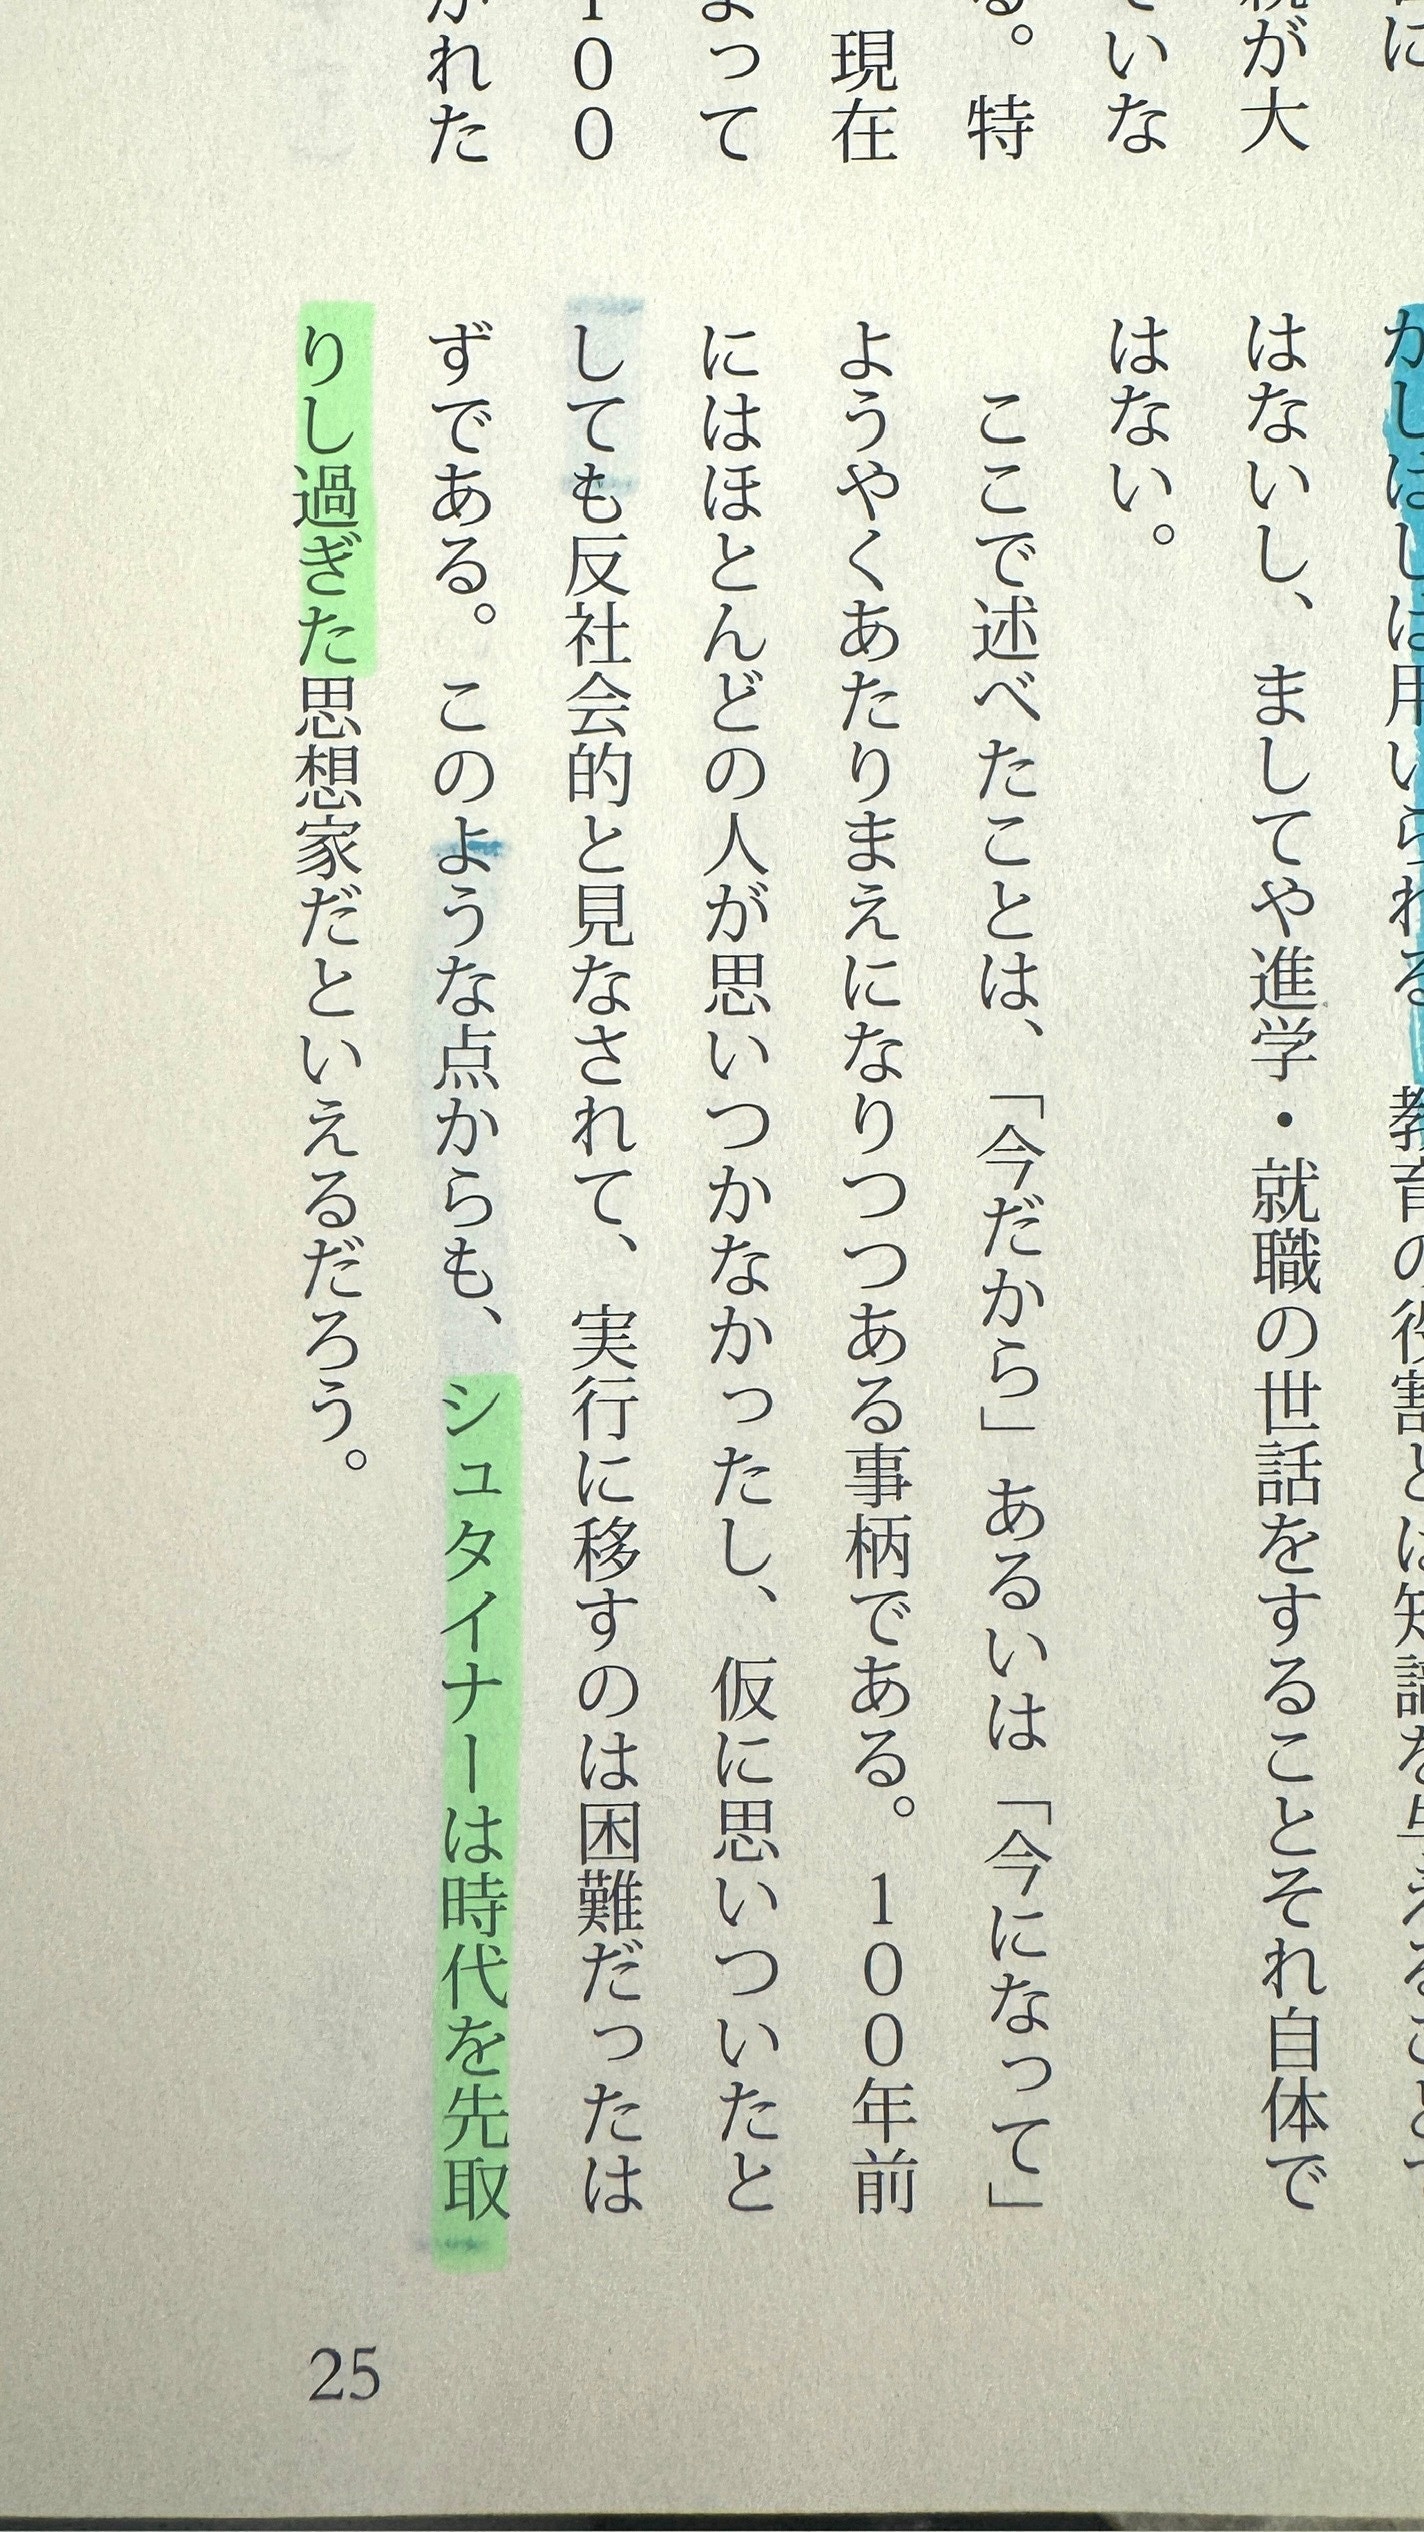 に
が大
いな
。特
現在
って
１００
れた
かしばしば用いられる　教育の役割とは知識を与えることで
はないし、ましてや進学・就職の世話をすることそれ自体で
はない。
ここで述べたことは、「今だから」あるいは「今になって」
ようやくあたりまえになりつつある事柄である。１００年前
にはほとんどの人が思いつかなかったし、仮に思いついたと
しても反社会的と見なされて、実行に移すのは困難だったは
ずである。このような点からも、シュタイナーは時代を先取
りし過ぎた思想家だといえるだろう。
25